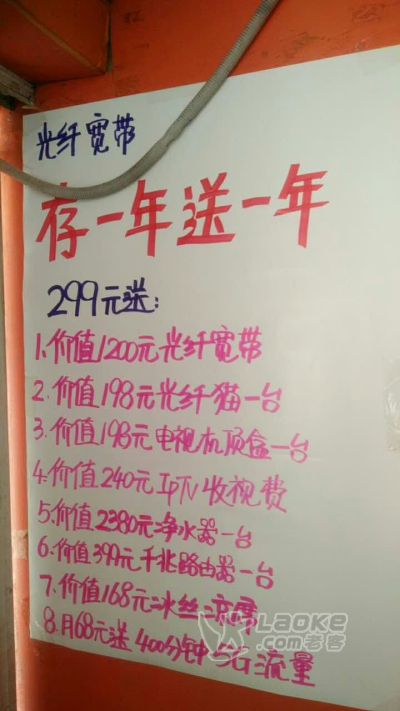 光纤宽带
存一年送一年
299元送：
1.价值1200元光纤宽带
2.价值198元光纤猫一台
3.价值198元电视机顶盒一台
4.价值240元IPTV收视费
5.价值2380元净水器一台
6.价值399元千兆路由器一台
7.价值168元冰丝凉席
8.月68元送400分钟5G流量
LAOKE
.com老客